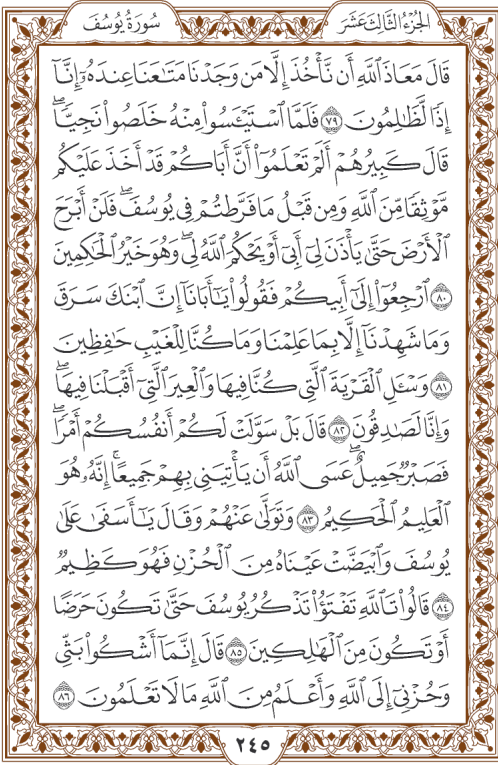 الجُزْءُ الثَّالِثَ عَشَرَ
سُورَةُ يُوسُفَ
قَالَ مَعَاذَ ٱللَّهِ أَن نَّأْخُذَ إِلَّا مَن وَجَدْنَا مَتَٰعَنَا عِندَهُۥٓ إِنَّآ
إِذًا لَّظَٰلِمُونَ ٧٩ فَلَمَّا ٱسْتَيْـَٔسُوا۟ مِنْهُ خَلَصُوا۟ نَجِيًّا ۖ
قَالَ كَبِيرُهُمْ أَلَمْ تَعْلَمُوٓا۟ أَنَّ أَبَاكُمْ قَدْ أَخَذَ عَلَيْكُم
مَّوْثِقًا مِّنَ ٱللَّهِ وَمِن قَبْلُ مَا فَرَّطتُمْ فِى يُوسُفَ ۖ فَلَنْ أَبْرَحَ
ٱلْأَرْضَ حَتَّىٰ يَأْذَنَ لِىٓ أَبِىٓ أَوْ يَحْكُمَ ٱللَّهُ لِى ۖ وَهُوَ خَيْرُ ٱلْحَٰكِمِينَ
٨٠ ٱرْجِعُوٓا۟ إِلَىٰٓ أَبِيكُمْ فَقُولُوا۟ يَٰٓأَبَانَآ إِنَّ ٱبْنَكَ سَرَقَ
وَمَا شَهِدْنَآ إِلَّا بِمَا عَلِمْنَا وَمَا كُنَّا لِلْغَيْبِ حَٰفِظِينَ
٨١ وَسْـَٔلِ ٱلْقَرْيَةَ ٱلَّتِى كُنَّا فِيهَا وَٱلْعِيرَ ٱلَّتِىٓ أَقْبَلْنَا فِيهَا ۖ
وَإِنَّا لَصَٰدِقُونَ ٨٢ قَالَ بَلْ سَوَّلَتْ لَكُمْ أَنفُسُكُمْ أَمْرًا ۖ
فَصَبْرٌ جَمِيلٌ ۖ عَسَى ٱللَّهُ أَن يَأْتِيَنِى بِهِمْ جَمِيعًا ۚ إِنَّهُۥ هُوَ
ٱلْعَلِيمُ ٱلْحَكِيمُ ٨٣ وَتَوَلَّىٰ عَنْهُمْ وَقَالَ يَٰٓأَسَفَىٰ عَلَىٰ
يُوسُفَ وَٱبْيَضَّتْ عَيْنَاهُ مِنَ ٱلْحُزْنِ فَهُوَ كَظِيمٌ
٨٤ قَالُوا۟ تَٱللَّهِ تَفْتَؤُا۟ تَذْكُرُ يُوسُفَ حَتَّىٰ تَكُونَ حَرَضًا
أَوْ تَكُونَ مِنَ ٱلْهَٰلِكِينَ ٨٥ قَالَ إِنَّمَآ أَشْكُوا۟ بَثِّى
وَحُزْنِىٓ إِلَى ٱللَّهِ وَأَعْلَمُ مِنَ ٱللَّهِ مَا لَا تَعْلَمُونَ ٨٦
٢٤٥